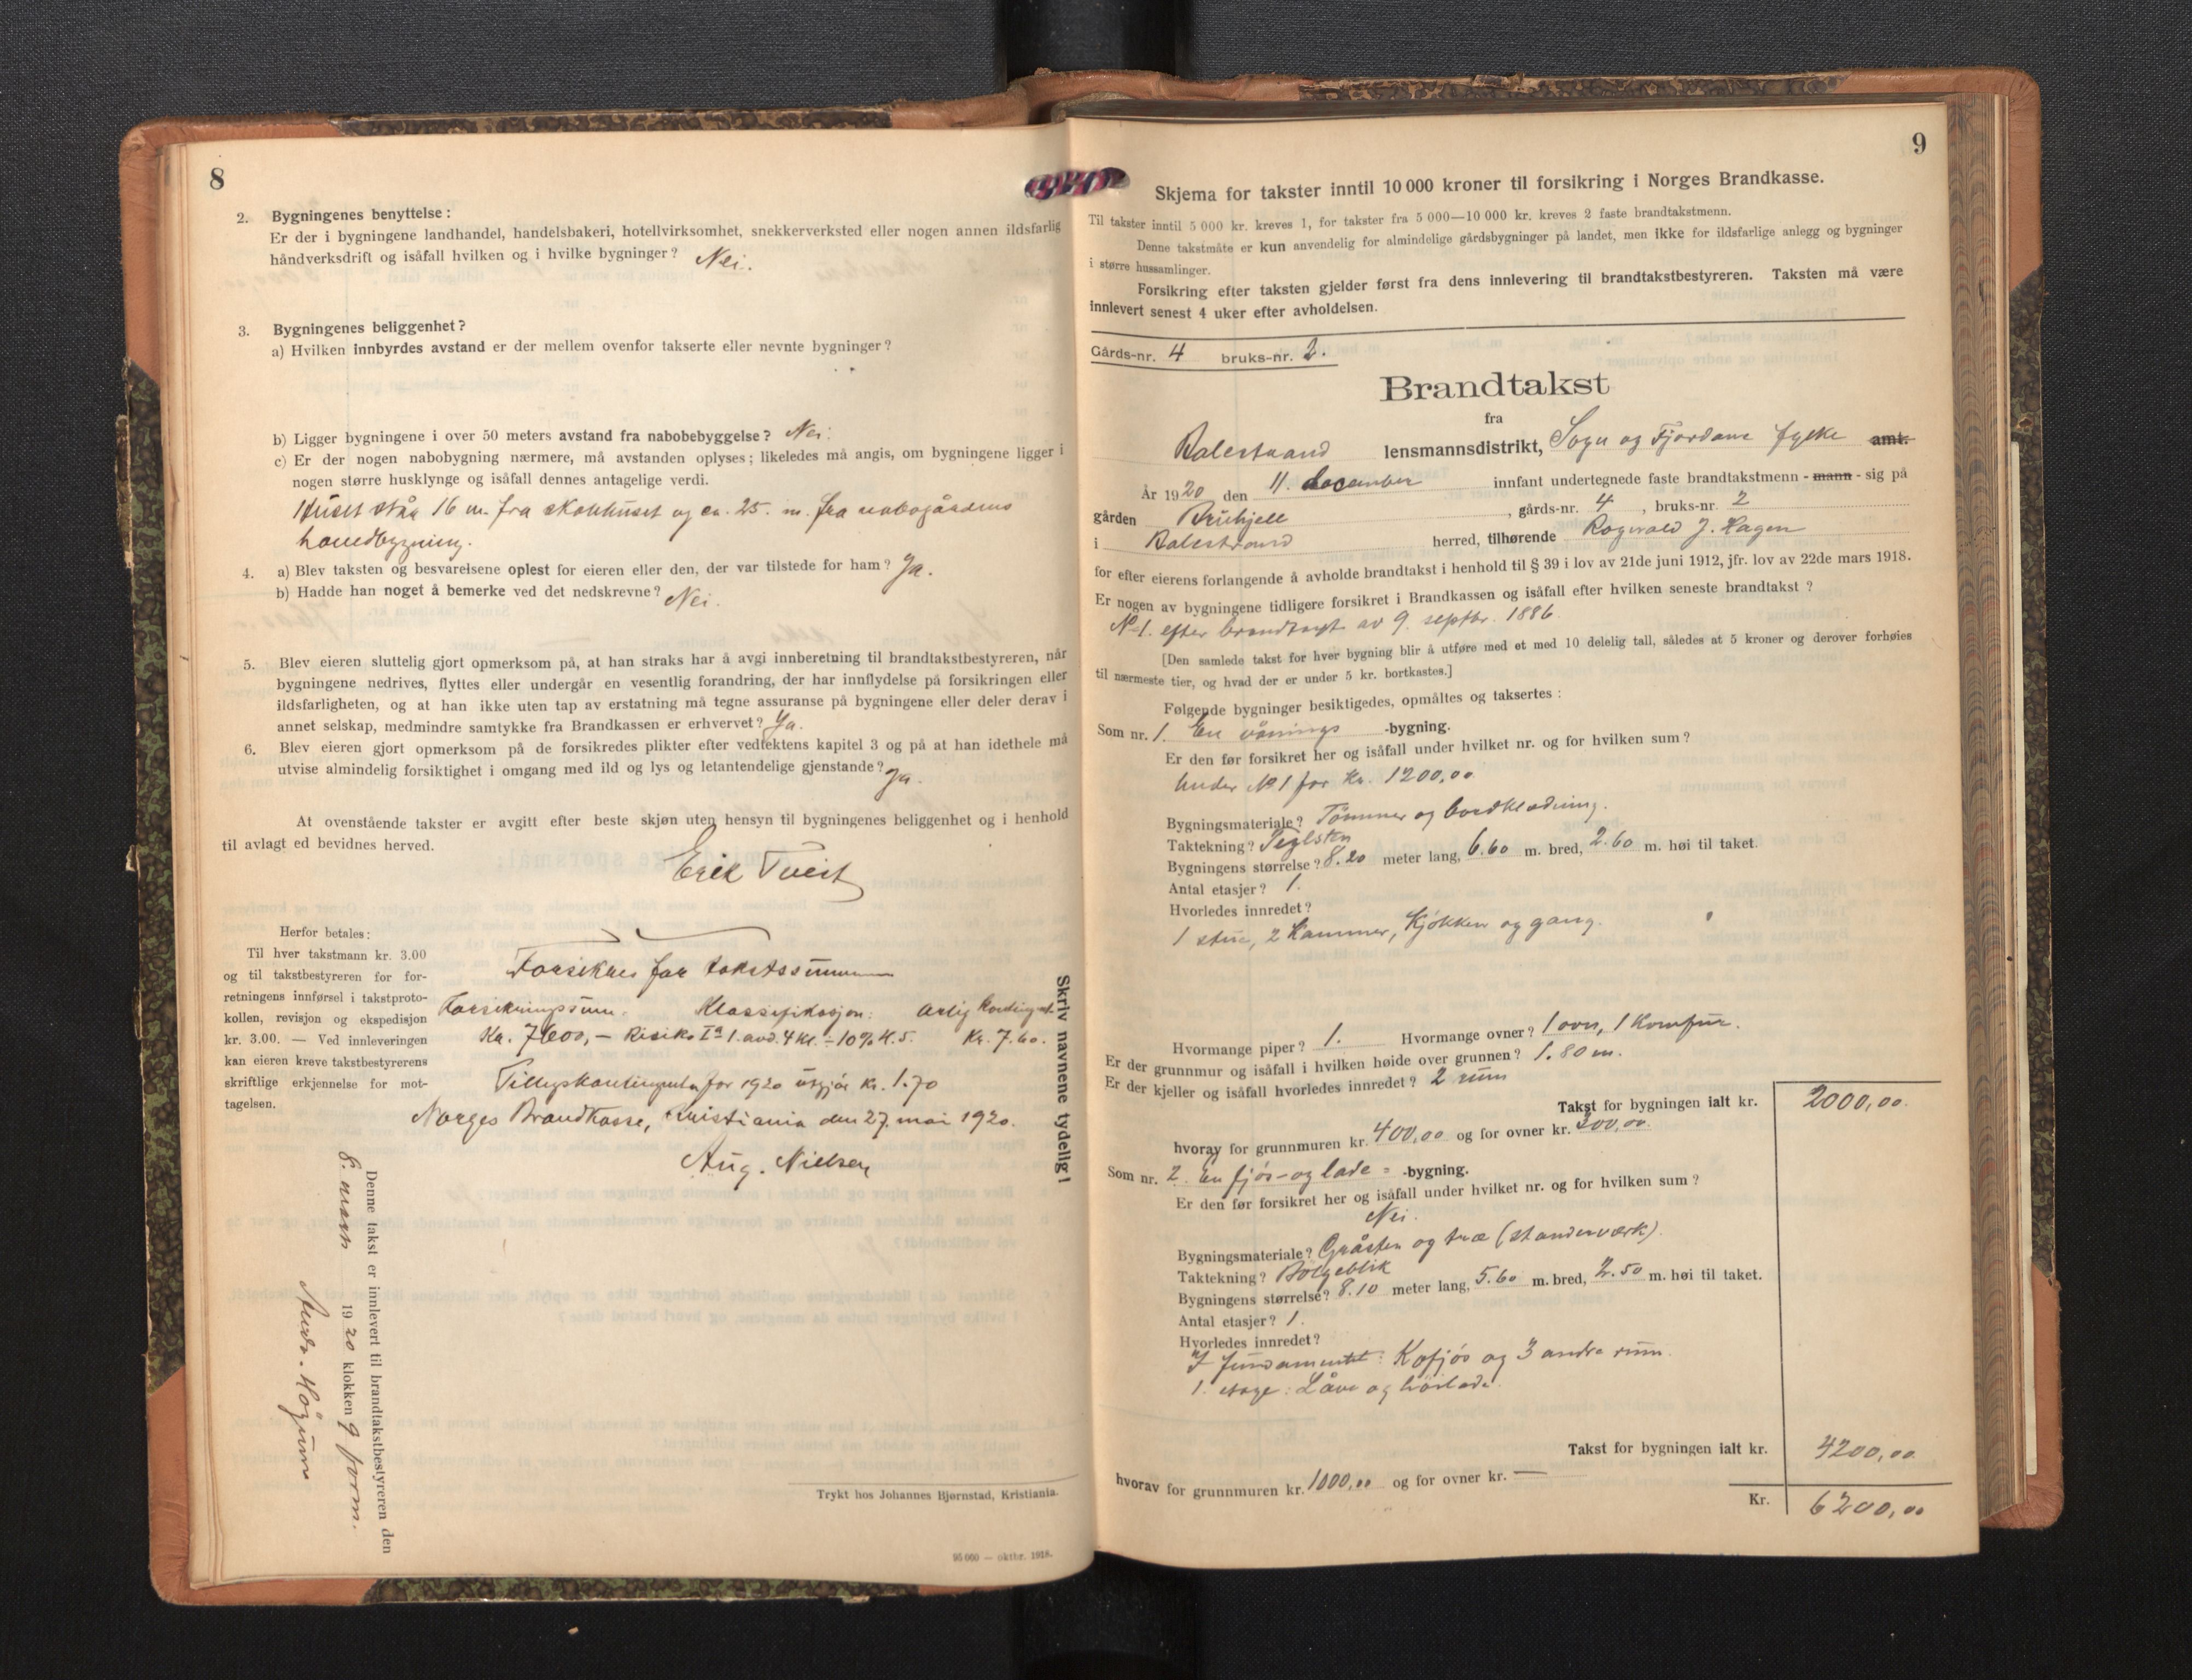 8
2. Bygningenes benyttelse:
Er der i bygningene landhandel, handelsbakeri, hotellvirksomhet, snekkerverksted eller nogen annen ildsfarlig
håndverksdrift og isåfall hvilken og i hvilke bygninger? Nei.
3. Bygningenes beliggenhet?
a) Hvilken innbyrdes avstand er der mellem ovenfor takserte eller nevnte bygninger?
b) Ligger bygningene i over 50 meters avstand fra nabobebyggelse? Nei.
c) Er der nogen nabobygning nærmere, må avstanden oplyses; likeledes må angis, om bygningene ligger i
nogen større husklynge og isåfall dennes antagelige verdi.
Huset står 16 m. fra skolehuset og ca. 25. m. fra nabogårdens
hovedbygning.
4. a) Blev taksten og besvarelsene oplest for eieren eller den, der var tilstede for ham? Ja.
b) Hadde han noget å bemerke ved det nedskrevne? Nei.
5. Blev eieren sluttelig gjort opmerksom på, at han straks har å avgi innberetning til brandtakstbestyreren, når
bygningene nedrives, flyttes eller undergår en vesentlig forandring, der har innflydelse på forsikringen eller
ildsfarligheten, og at han ikke uten tap av erstatning må tegne assuranse på bygningene eller deler derav i
annet selskap, medmindre samtykke fra Brandkassen er erhvervet? Ja.
6. Blev eieren gjort opmerksom på de forsikredes plikter efter vedtektens kapitel 3 og på at han idethele må
utvise almindelig forsiktighet i omgang med ild og lys og letantendelige gjenstande? Ja.
At ovenstående takster er avgitt efter beste skjøn uten hensyn til bygningenes beliggenhet og i henhold
til avlagt ed bevidnes herved.
Erik Tveit
Herfor betales:
Til hver takstmann kr. 3.00
og til takstbestyreren for for-
retningens innførsel i takstproto-
kollen, revisjon og ekspedisjon
kr. 3.00. — Ved innleveringen
kan eieren kreve takstbestyrerens
skriftlige erkjennelse for mot-
tagelsen.
Forsikres for takstsummen
Forsikringssum. Klassifikasjon: Årlig kontingent.
Kr. 7600,- Risiko Ia 1. avd. 4 kl. ÷ 10% K. 5. Kr. 7.60.
Tillegskontingenten for 1920 utgjør kr. 1.70
Norges Brandkasse, Kristiania den 27. mai 1920.
Aug. Nielsen
Skriv navnene tydelig!
Denne takst er innlevert til brandtakstbestyreren den
8. mars 1920 klokken 9 form.
Trykt hos Johannes Bjørnstad, Kristiania.
95 000 — oktbr. 1918.
9
Skjema for takster inntil 10 000 kroner til forsikring i Norges Brandkasse.
Til takster inntil 5 000 kr. kreves 1, for takster fra 5 000—10 000 kr. kreves 2 faste brandtakstmenn.
Denne takstmåte er kun anvendelig for almindelige gårdsbygninger på landet, men ikke for ildsfarlige anlegg og bygninger
i større hussamlinger.
Forsikring efter taksten gjelder først fra dens innlevering til brandtakstbestyreren. Taksten må være
innlevert senest 4 uker efter avholdelsen.
Gårds-nr. 4 bruks-nr. 2.
Brandtakst
fra
Balestrand lensmannsdistrikt, Sogn og Fjordane fylke amt.
År 1920 den 11. december innfant undertegnede faste brandtakstmenn - mann - sig på
gården , gårds-nr. 4 , bruks-nr. 2
i Balestrand herred, tilhørende Rognvald J. Hagen
for efter eierens forlangende å avholde brandtakst i henhold til § 39 i lov av 21de juni 1912, jfr. lov av 22de mars 1918.
Er nogen av bygningene tidligere forsikret i Brandkassen og isåfall efter hvilken seneste brandtakst?
No 1. efter brandtaxt av 9. septbr. 1886.
[Den samlede takst for hver bygning blir å utføre med et med 10 delelig tall, således at 5 kroner og derover forhøies
til nærmeste tier, og hvad der er under 5 kr. bortkastes.]
Følgende bygninger besiktigedes, opmåltes og taksertes:
Som nr. 1. En vånings -bygning.
Er den før forsikret her og isåfall under hvilket nr. og for hvilken sum?
Under No 1 for Kr. 1200,00
Bygningsmateriale? Tömmer og bordklædning.
Taktekning? Teglsten
Bygningens størrelse? 8.20 meter lang, 6.60 m. bred, 2.60 m. høi til taket.
Antal etasjer? 1.
Hvorledes innredet?
1 stue, 2 kammer, Kjökken og gang.
Hvormange piper? 1. Hvormange ovner? 1 ovn, 1 komfur.
Er der grunnmur og isåfall i hvilken høide over grunnen? 1.80 m.
Er der kjeller og isåfall hvorledes innredet? 2 rum
Takst for bygningen ialt kr. 2000,00.
hvorav for grunnmuren kr. 400,00 og for ovner kr. 200,00.
Som nr. 2. En fjös- og lade -bygning.
Er den før forsikret her og isåfall under hvilket nr. og for hvilken sum?
Nei.
Bygningsmateriale? Gråsten og træ (standerværk).
Taktekning? Bölgeblik
Bygningens størrelse? 8.10 meter lang, 5.60 m. bred, 2.50 m. høi til taket.
Antal etasjer? 1.
Hvorledes innredet?
I fundamentet: Kofjös og 3 andre rum.
1. etage: Låve og höilade.
Takst for bygningen ialt kr. 4200,00
hvorav for grunnmuren kr. 1000,00 og for ovner kr. —
Kr. 6200,00